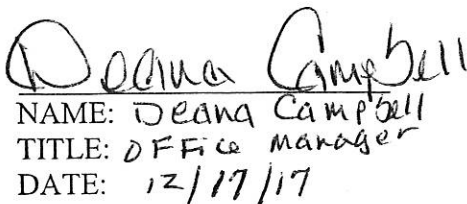 Deana Campbell
NAME: Deana Campbell
TITLE: OFFice manager
DATE: 12/17/17